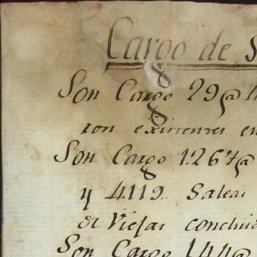 Cargo de
Son Cargo 29@
ron existentes en
Son Cargo 1267@
y 4119. Salea
de Viejas conclui
Son Cargo 144@